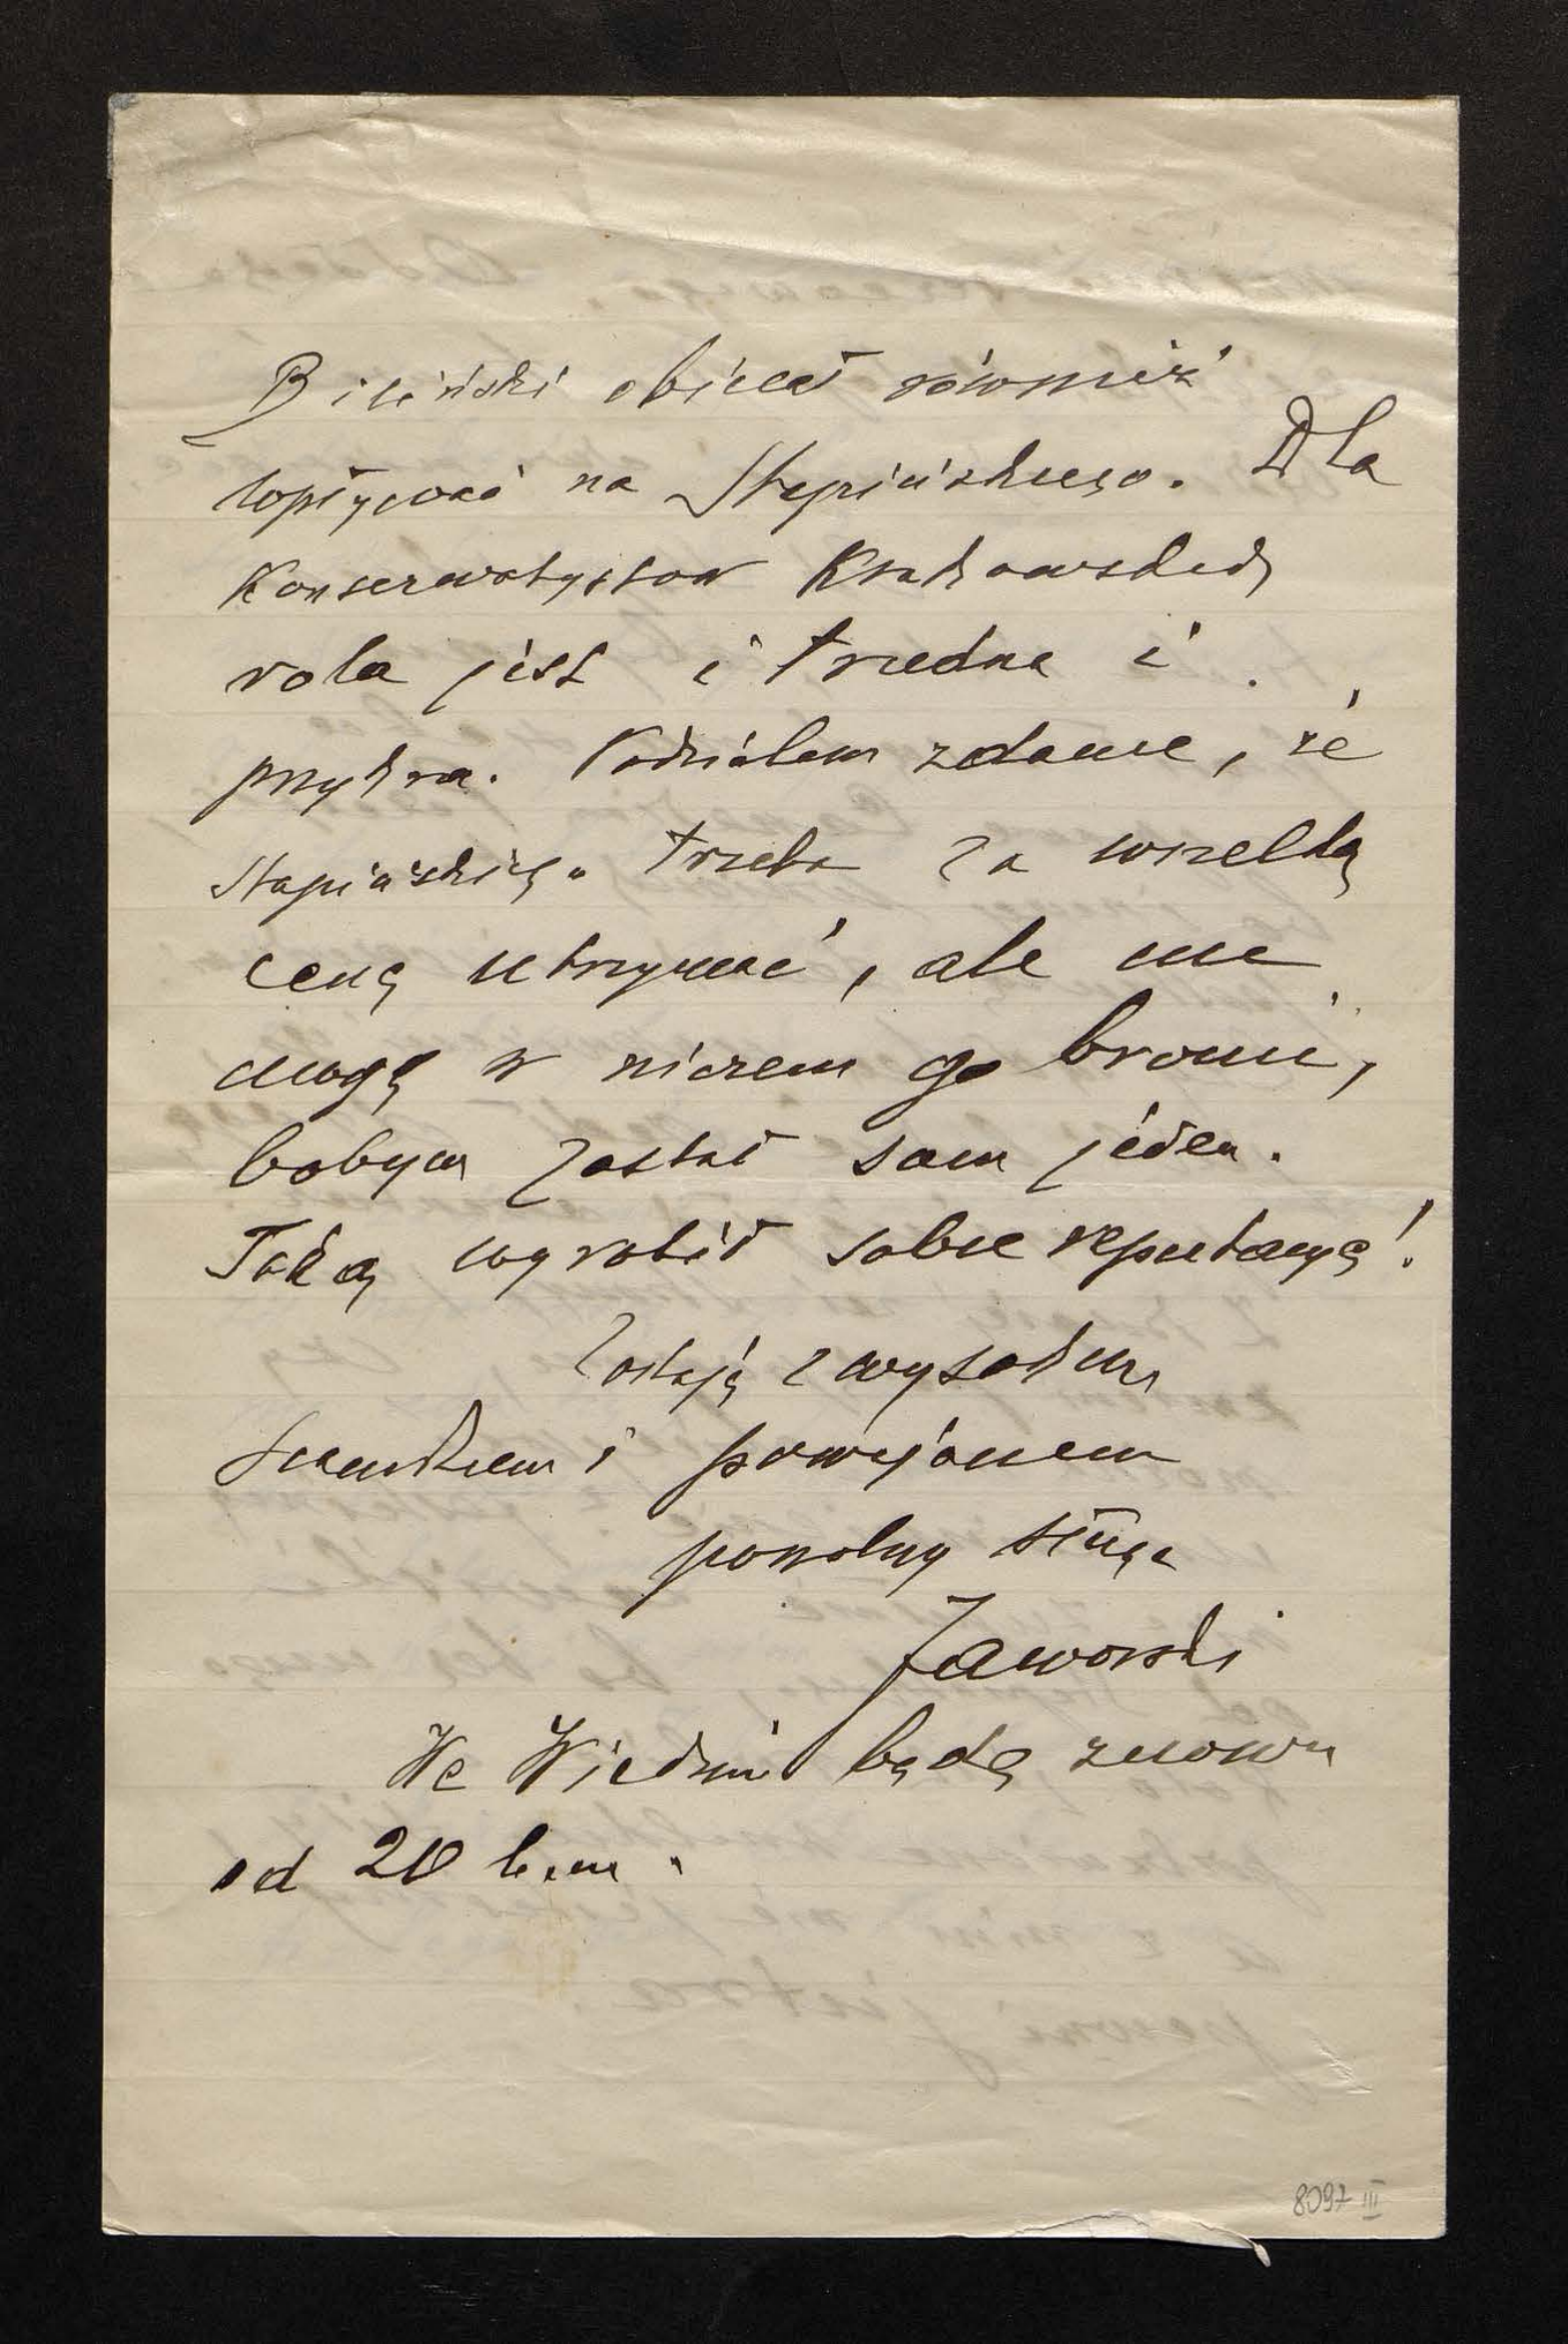 Biliński obiecał również
wpływać na Stapińskiego. Dla
Konserwatystów Krakowskich
rola jest i trudna i
przykra. Podzielam zdanie, że
Stapińskiego trzeba za wszelką
cenę utrzymać, ale nie
mogę w niczem go bronić,
bobym został sam jeden.
Taką wyrobił sobie reputacyę!
Zostaję z wysokim
szacunkiem i poważaniem
powolny sługa
Jaworski
We Wiedniu będę znowu
od 20 b.m.
8097 III